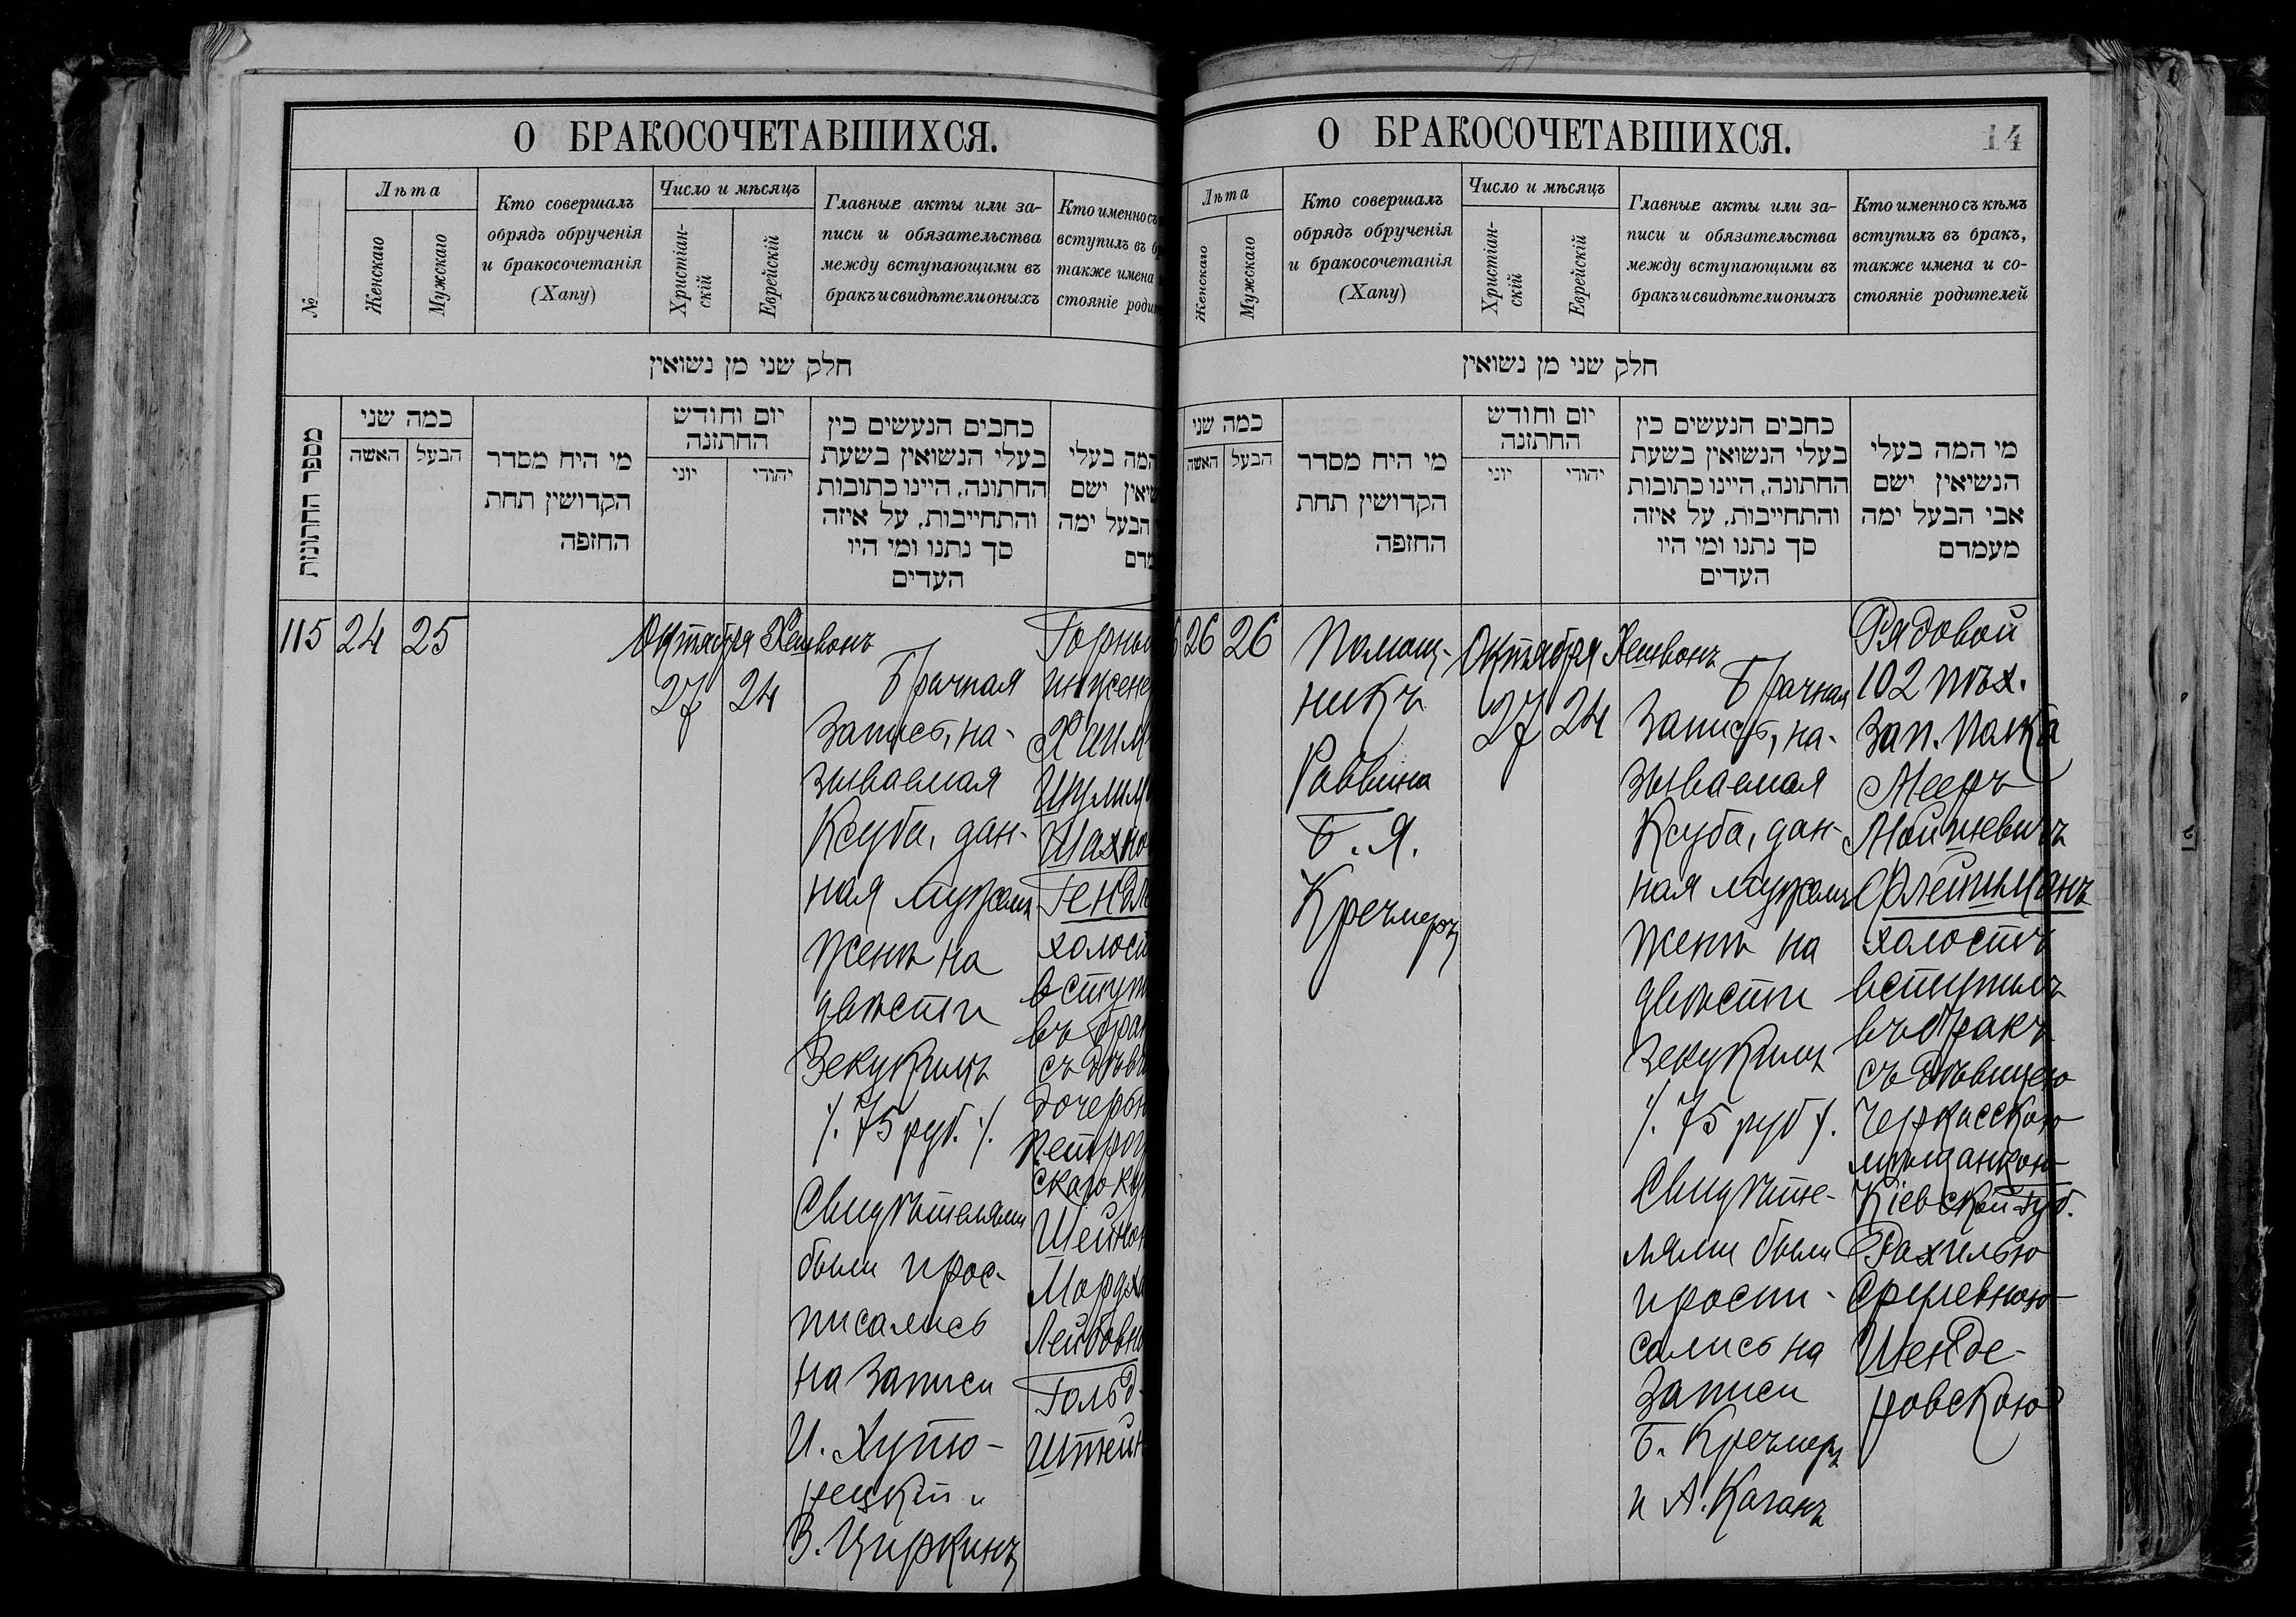 О БРАКОСОЧЕТАВШИХСЯ.
№
Лѣта
Женскаго
Мужскаго
Кто совершалъ
обрядъ обрученія
и бракосочетанія
(Хапу)
Число и мѣсяцъ
Христіан-
скій
Еврейскій
Главные акты или за-
писи и обязательства
между вступающими въ
бракъ и свидѣтели оныхъ
Кто именно съ
вступилъ въ б
также имена
стояніе роди
חלק שני מן נשואין
מספר החתונות
כמה שני
האשה
הבעל
מי היח מסדר
הקדושין תחת
החזפה
יום וחודש
החתזנה
יוני
יהודי
כחבים הנעשים כין
בעלי הנשואין בשעת
החתונה, היינו כתובות
והתחייבות, על איזה
סך נתנו ומי היו
העדים
המה בעלי
שיאין ישם
הבעל ימה
מדם
115
24
25
Октября Хешвонъ
27 24
Брачная
запись, на-
зываемая
Ксуба, дан-
ная мужемъ
женѣ на
двѣсти
зекукимъ
/. 75 руб. /.
Свидѣтелями
были и рос-
писались
на записи
И. Хутю-
рецкій и
В. Циркинъ
Горный
инжене
Хаим
Шулим
Шахно
Гендл
холост
вступи
въ брак
съ дѣви
дочерью
Петрог
скаго ку
Шейною
Мордхо
Лейбовно
Гольд-
штейн
О БРАКОСОЧЕТАВШИХСЯ.
14
Лѣта
Женскаго
Мужскаго
Кто совершалъ
обрядъ обрученія
и бракосочетанія
(Хапу)
Число и мѣсяцъ
Христіан-
скій
Еврейскій
Главные акты или за-
писи и обязательства
между вступающими въ
бракъ и свидѣтели оныхъ
Кто именно съ кѣмъ
вступилъ въ бракъ,
также имена и со-
стояніе родителей
חלק שני מן נשואין
כמה שני
האשה
הבעל
מי היח מסדר
הקדושין תחת
החזפה
יום וחודש
החתזנה
יוני
יהודי
כחבים הנעשים כין
בעלי הנשואין בשעת
החתונה, היינו כתובות
והתחייבות, על איזה
סך נתנו ומי היו
העדים
מי המה בעלי
הנשיאין ישם
אבי הבעל ימה
מעמדם
6
26
26
Помощ-
никъ
Раввина
Б. Я.
Кречмеръ
Октября Хешвонъ
27 24
Брачная
запись, на-
зываемая
Ксуба, дан-
ная мужемъ
женѣ на
двѣсти
зекукимъ
/. 75 руб /.
Свидѣте-
лями были
и роспи-
сались на
записи
Б. Кречмеръ
и А. Каганъ
Рядовой
102 пѣх.
зап. полка
Мееръ
Мойшевичъ
Флейшманъ
холостъ
вступилъ
въ бракъ
съ дѣвицею
Черкасскою
мѣщанкою
Кіевской губ.
Рахилью
Сруревною
Шенде-
ровскою